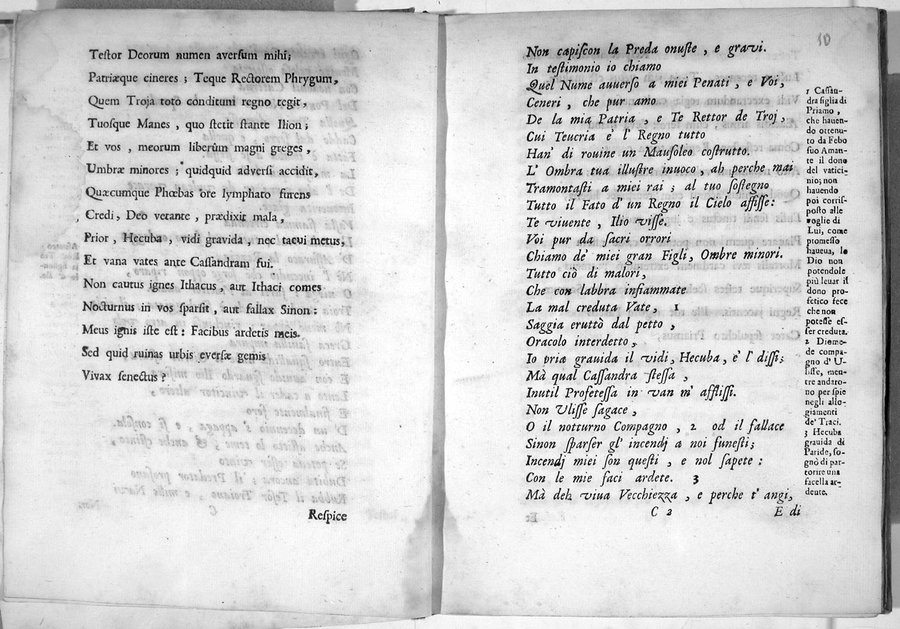 Teſtor Deorum numen averſum mihi;
Patriæque cineres; Teque Rectorem Phrygum,
Quem Troja toto conditum regno tegit,
Tuoſque Manes, quo ſtetit ſtante Ilion;
Et vos, meorum liberûm magni greges,
Umbræ minores; quidquid adverſi accidit,
Quæcumque Phœbas ore lymphato furens
Credi, Deo vetante, prædixit mala,
Prior, Hecuba, vidi gravida, nec tacui metus,
Et vana vates ante Caſſandram fui.
Non cautus ignes Ithacus, aut Ithaci comes
Nocturnus in vos ſparſit, aut fallax Sinon:
Meus ignis iſte eſt: Facibus ardetis meis.
Sed quid ruinas urbis everſæ gemis
Vivax ſenectus?
Reſpice
10
Non capiſcon la Preda onuſte, e gravi.
In teſtimonio io chiamo
Quel Nume avverſo a miei Penati, e Voi,
Ceneri, che pur amo
De la mia Patria, e Te Rettor de Troj,
Cui Teucria e' l' Regno tutto
Han' di rouine un Mauſoleo coſtrutto.
L' Ombra tua illuſtre inuoco, ah perche mai
Tramontaſti a miei rai; al tuo ſoſtegno
Tutto il Fato d' un Regno il Cielo affiſſe:
Te viuente, Ilio viſſe.
Voi pur da ſacri orrori
Chiamo de' miei gran Figli, Ombre minori.
Tutto ciò di malori,
Che con labbra infiammate
La mal creduta Vate, 1
Saggia eruttò dal petto,
Oracolo interdetto,
Io pria grauida il vidi, Hecuba, e' l' diſſi;
Mà qual Caſſandra ſteſſa,
Inutil Profeteſſa in van m' affliſſi.
Non Uliſſe ſagace,
O il notturno Compagno, 2 od il fallace
Sinon ſparſer gl' incendj a noi funeſti;
Incendj miei ſon queſti, e nol ſapete:
Con le mie faci ardete. 3
Mà deh viua Vecchiezza, e perche t' angi,
C 2 E di
1 Caſſan-
dra figlia di
Priamo,
che hauen-
do ottenu-
to da Febo
ſuo Aman-
te il dono
del vatici-
nio; non
hauendo
poi corriſ-
poſto alle
voglie di
Lui, come
promeſſo
haueua, lo
Dio non
potendole
più leuar il
dono pro-
fetico fece
che non
poteſſe eſ-
ſer creduta.
2 Diome-
de compa-
gno d' U-
liſſe, men-
tre andaro-
no per ſpie
negli allo-
giamenti
de' Traci.
3 Hecuba
grauida di
Paride, ſo-
gnò di par-
torire una
facella ar-
dente.